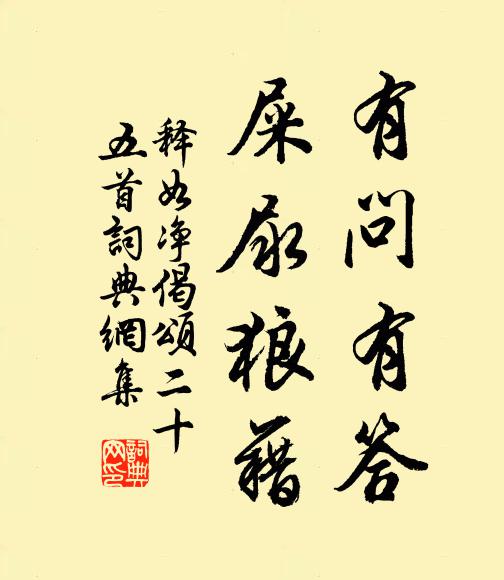 有问有答
屎尿狼藉
释如净偈颂二十
五首詞典網集
詞典
网印